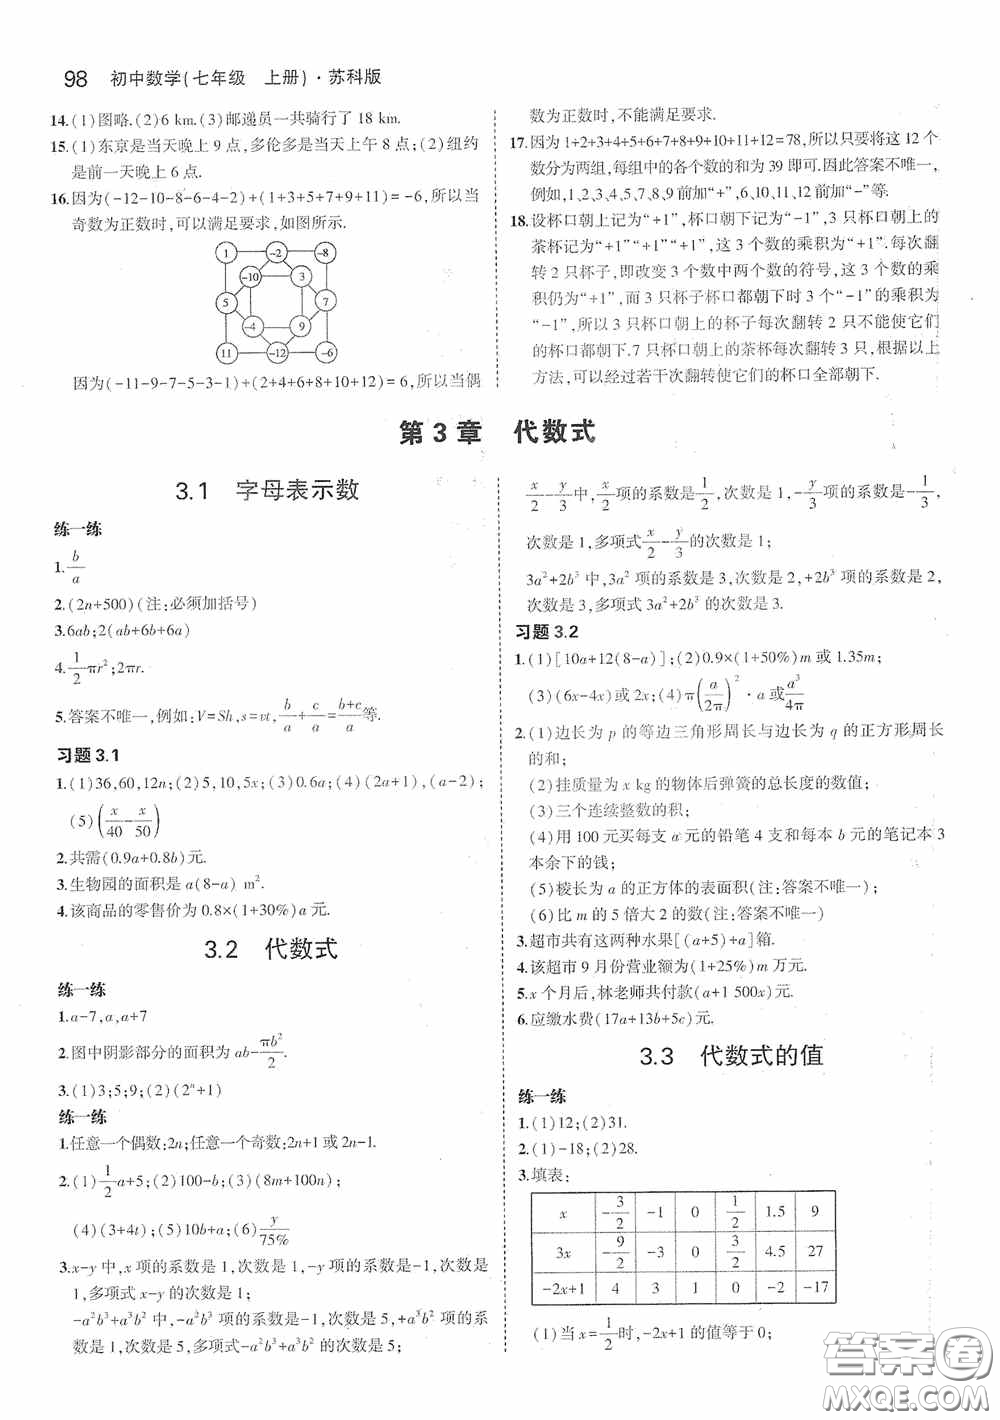 98 初中数学(七年级 上册)·苏科版
14.(1)图略.(2)6 km.(3)邮递员一共骑行了 18 km.
15.(1)东京是当天晚上 9 点,多伦多是当天上午 8 点;(2)纽约
是前一天晚上 6 点.
16.因为(-12-10-8-6-4-2)+(1+3+5+7+9+11)=-6,所以当
奇数为正数时,可以满足要求,如图所示.
1 -2 -8
-10 3
5 7
-4 9
11 -12 -6
因为(-11-9-7-5-3-1)+(2+4+6+8+10+12)=6,所以当偶
数为正数时,不能满足要求.
17.因为 1+2+3+4+5+6+7+8+9+10+11+12=78,所以只要将这 12 个
数分为两组,每组中的各个数的和为 39 即可.因此答案不唯一,
例如,1、2、3、4、5、7、8、9 前加“+”,6、10、11、12 前加“-”等.
18.设杯口朝上记为“+1”,杯口朝下记为“-1”,3 只杯口朝上的
茶杯记为“+1”“+1”“+1”,这 3 个数的乘积为“+1”.每次翻
转 2 只杯子,即改变 3 个数中两个数的符号,这 3 个数的乘
积仍为“+1”,而 3 只杯子杯口都朝下时 3 个“-1”的乘积为
“-1”,所以 3 只杯口朝上的杯子每次翻转 2 只不能使它们
的杯口都朝下.7 只杯口朝上的茶杯每次翻转 3 只,根据以上
方法,可以经过若干次翻转使它们的杯口全部朝下.
第 3 章 代数式
3.1 字母表示数
练一练
1. b/a
2.(2n+500)(注:必须加括号)
3.6ab;2(ab+6b+6a)
4. 1/2 πr²;2πr.
5.答案不唯一,例如:V=Sh,s=vt, b/a + c/a = (b+c)/a 等.
习题 3.1
1.(1)36,60,12n;(2)5,10,5x;(3)0.5a;(4)(2a+1),(a-2);
(5)(x/40 - x/50)
2.共需(0.9a+0.8b)元.
3.生物园的面积是 a(8-a) m².
4.该商品的零售价为 0.8×(1+30%)a 元.
3.2 代数式
练一练
1.a-7,a,a+7
2.图中阴影部分的面积为 ab- πb²/2.
3.(1)3;5;9;(2)(2ⁿ+1)
练一练
1.任意一个偶数:2n;任意一个奇数:2n+1 或 2n-1.
2.(1) 1/2 a+5;(2)100-b;(3)(8m+100n);
(4)(3+4t);(5)10b+a;(6) y/75%
3.x-y 中,x 项的系数是 1,次数是 1,-y 项的系数是-1,次数是
1,多项式 x-y 的次数是 1;
-a²b³+a³b² 中,-a²b³ 项的系数是-1,次数是 5,+a³b² 项的系
数是 1,次数是 5,多项式-a²b³+a³b² 的次数是 5;
x/2 - y/3 中, x/2 项的系数是 1/2,次数是 1,- y/3 项的系数是- 1/3,
次数是 1,多项式 x/2 - y/3 的次数是 1;
3a²+2b³ 中,3a² 项的系数是 3,次数是 2,+2b³ 项的系数是 2,
次数是 3,多项式 3a²+2b³ 的次数是 3.
习题 3.2
1.(1)[10a+12(8-a)];(2)0.9×(1+50%)m 或 1.35m;
(3)(6x-4x)或 2x;(4)π(a/2π)²·a 或 a³/4π
2.(1)边长为 p 的等边三角形周长与边长为 q 的正方形周长
的和;
(2)挂质量为 x kg 的物体后弹簧的总长度的数值;
(3)三个连续整数的积;
(4)用 100 元买每支 a 元的铅笔 4 支和每本 b 元的笔记本 3
本余下的钱;
(5)棱长为 a 的正方体的表面积(注:答案不唯一);
(6)比 m 的 5 倍大 2 的数(注:答案不唯一)
3.超市共有这两种水果[(a+5)+a]箱.
4.该超市 9 月份营业额为(1+25%)m 万元.
5.x 个月后,林老师共付款(a+1 500x)元.
6.应缴水费(17a+13b+5c)元.
3.3 代数式的值
练一练
1.(1)12;(2)31.
2.(1)-18;(2)28.
3.填表:
x -3/2 -1 0 1/2 1.5 9
3x -9/2 -3 0 3/2 4.5 27
-2x+1 4 3 1 0 -2 -17
(1)当 x= 1/2 时,-2x+1 的值等于 0;
答案卷
MXQE.COM